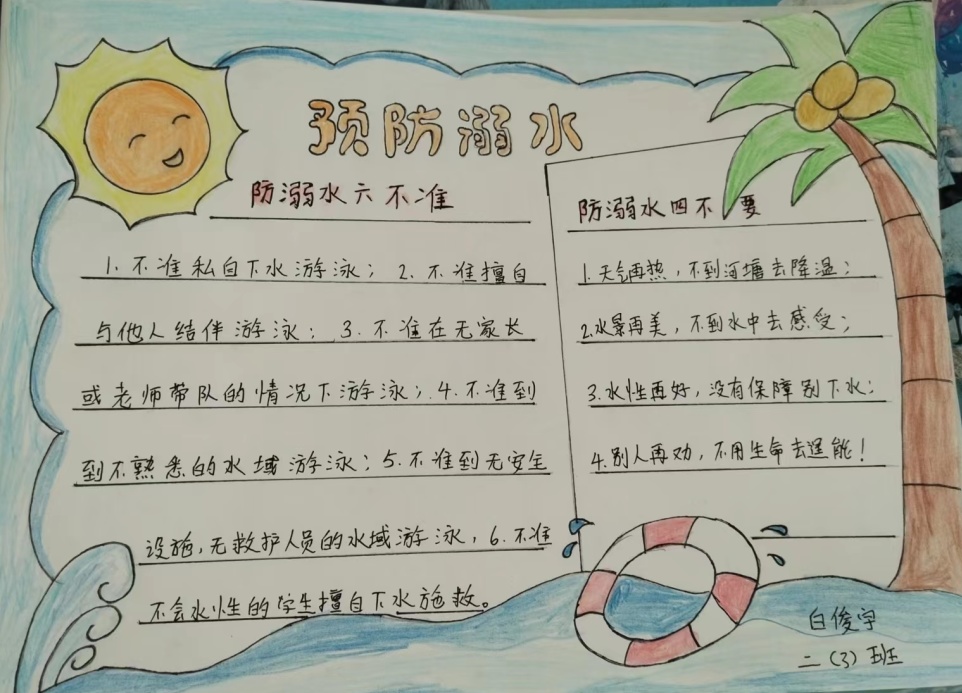 预防溺水
防溺水六不准
1. 不准私自下水游泳; 2. 不准擅自
与他人结伴游泳; 3. 不准在无家长
或老师带队的情况下游泳; 4. 不准到
到不熟悉的水域游泳; 5. 不准到无安全
设施,无救护人员的水域游泳, 6. 不准
不会水性的学生擅自下水施救。
防溺水四不要
1. 天气再热,不到河塘去降温;
2. 水景再美,不到水中去感受;
3. 水性再好,没有保障别下水;
4. 别人再劝,不用生命去逞能!
白俊宇
二(3)班